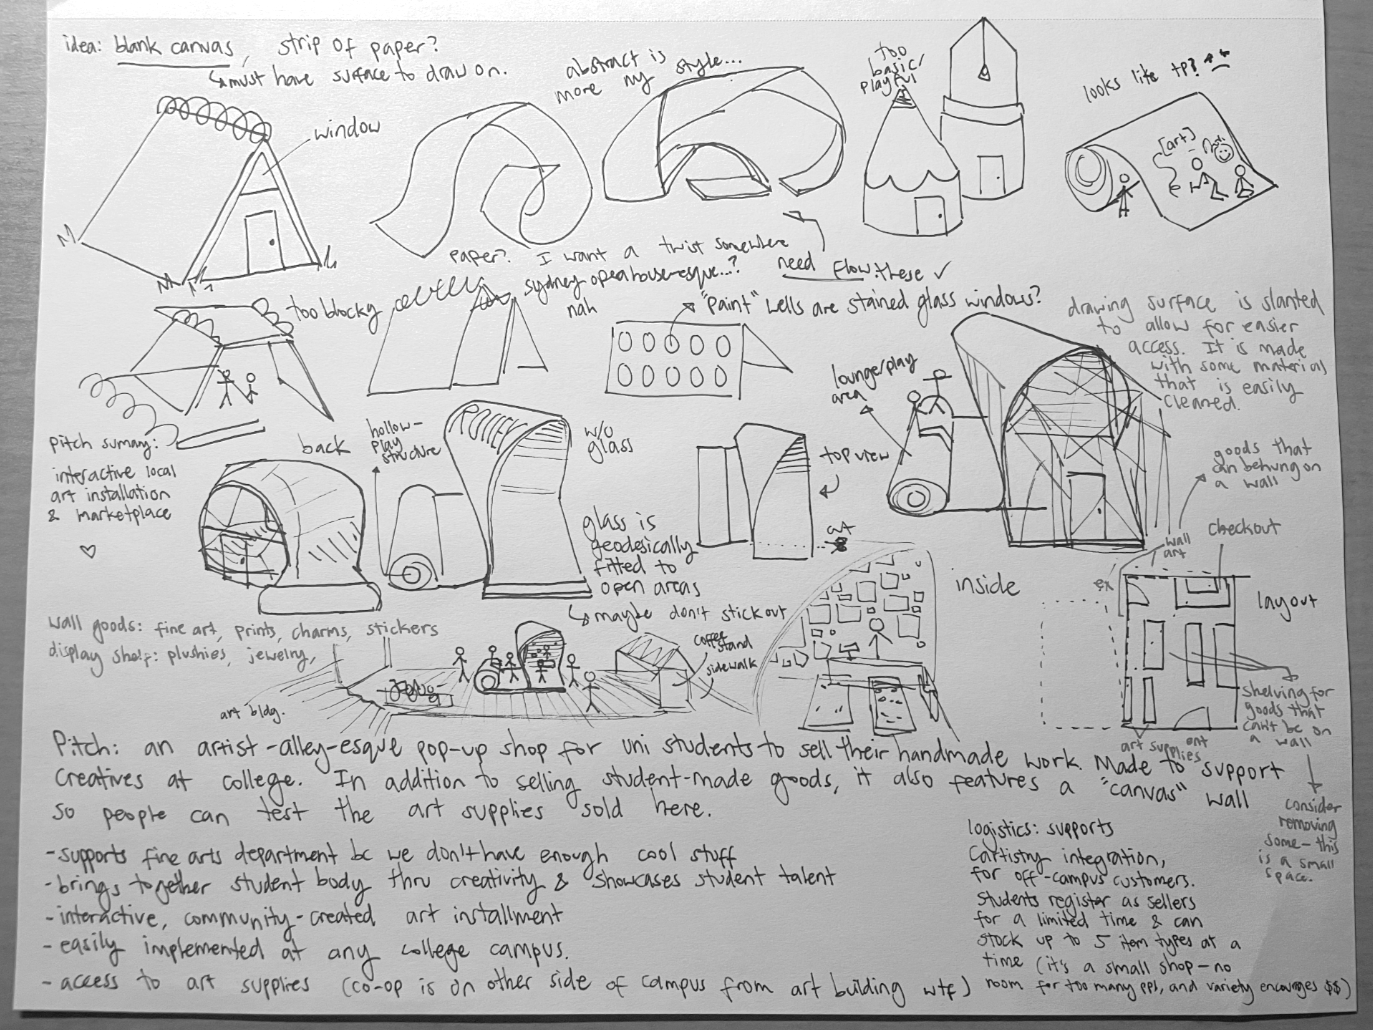 idea: blank canvas, strip of paper?
↳ must have surface to draw on.
window
abstract is
more my style...
too
basic/
playful
looks like tp?
[art]
paper? I want a twist somewhere
sydney opera house-esque...?
nah
need flow these ✓
too blocky
"Paint" wells are stained glass windows?
drawing surface is slanted
to allow for easier
access. It is made
with some material
that is easily
cleaned.
lounge/play
area
Pitch summary:
interactive local
art installation
& marketplace
♡
back
hollow-
play
structure
w/o
glass
top view
glass is
geodesically
fitted to
open areas
↳ maybe don't stick out
goods that
can be hung on
a wall
wall
art
checkout
inside
layout
wall goods: fine art, prints, charms, stickers
display shelf: plushies, jewelry,
art bldg.
coffee
stand
sidewalk
art supplies
shelving for
goods that
can't be on
a wall
consider
removing
some - this
is a small
space.
Pitch: an artist-alley-esque pop-up shop for uni students to sell their handmade work. Made to support
creatives at college. In addition to selling student-made goods, it also features a "canvas" wall
so people can test the art supplies sold here.
- supports fine arts department bc we don't have enough cool stuff
- brings together student body thru creativity & showcases student talent
- interactive, community-created art installment
- easily implemented at any college campus.
- access to art supplies (co-op is on other side of campus from art building wtf)
logistics: supports
Cartistry integration,
for off-campus customers.
Students register as sellers
for a limited time & can
stock up to 5 item types at a
time (it's a small shop - no
room for too many ppl, and variety encourages $$)